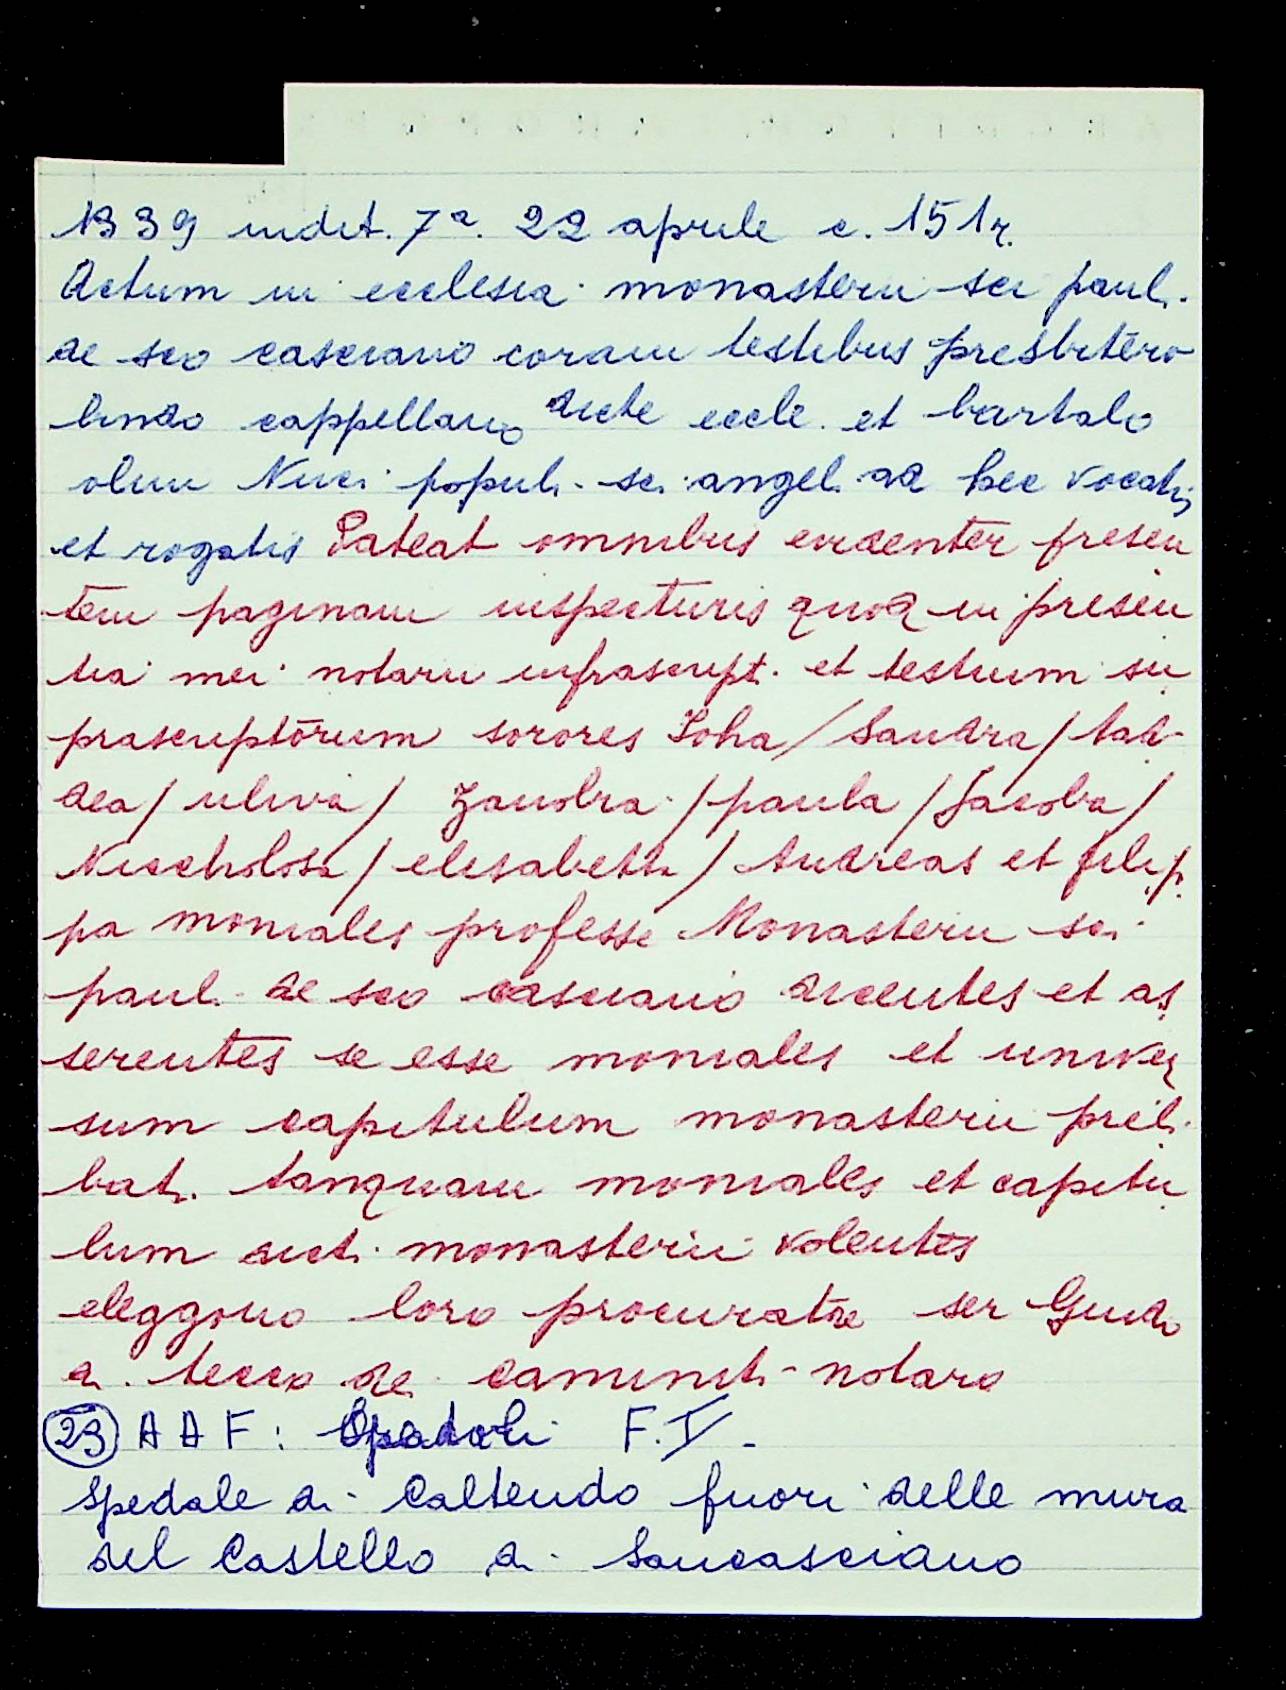 1339 indit. 7ª. 22 aprile c. 151r.
Actum in ecclesia monasterii sci pauli
de sco casciano coram testibus presbitero
lindo cappellano dicte eccle. et bartalo
olim Nuci populi sci angeli ad hec vocatis
et rogatis Pateat omnibus evidenter presen
tem paginam inspecturis quod in presen
tia mei notarii infrascript. et testium su
prascriptorum sorores Joha / Sandra / tad
dea / uliva / Zanobia / paula / Jacoba /
Niccholosa / elisabetta / Andreas et filip
pa moniales professe Monasterii sci
pauli de sco casciano dicentes et as
serentes se esse moniales et univer
sum capitulum monasterii preli
bati. tanquam moniales et capitu
lum dicti monasterii volentes
eleggono loro procuratore ser Guido
di tecco de notaro
23 A A F: F. V.
Spedale di Caltendo fuori delle mura
del Castello di Sancasciano